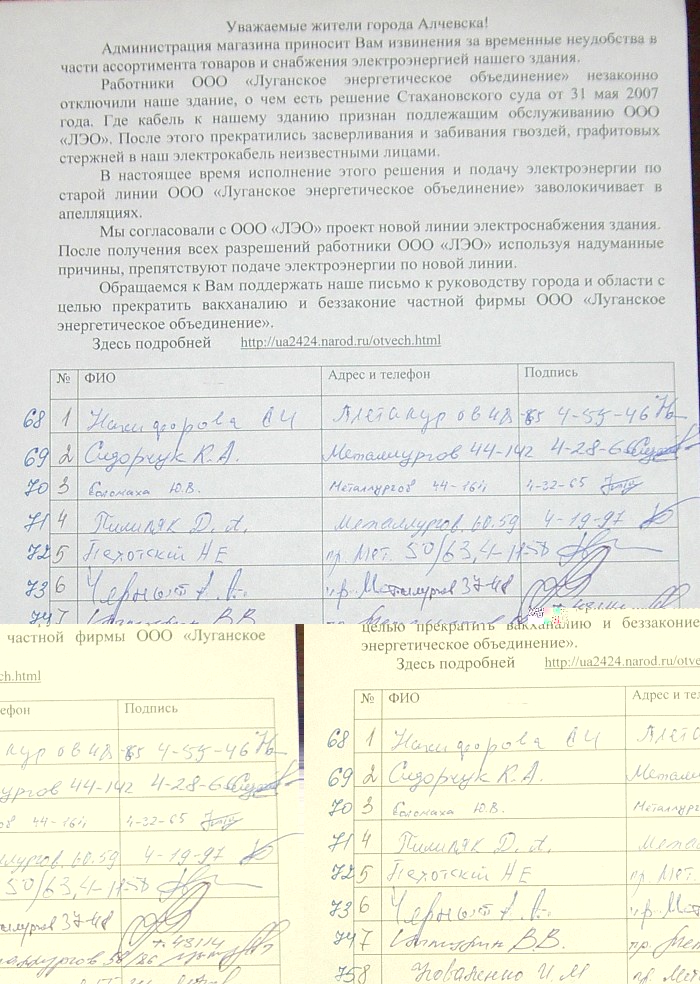 Уважаемые жители города Алчевска!
Администрация магазина приносит Вам извинения за временные неудобства в
части ассортимента товаров и снабжения электроэнергией нашего здания.
Работники ООО «Луганское энергетическое объединение» незаконно
отключили наше здание, о чем есть решение Стахановского суда от 31 мая 2007
года. Где кабель к нашему зданию признан подлежащим обслуживанию ООО
«ЛЭО». После этого прекратились засверливания и забивания гвоздей, графитовых
стержней в наш электрокабель неизвестными лицами.
В настоящее время исполнение этого решения и подачу электроэнергии по
старой линии ООО «Луганское энергетическое объединение» заволокичивает в
апелляциях.
Мы согласовали с ООО «ЛЭО» проект новой линии электроснабжения здания.
После получения всех разрешений работники ООО «ЛЭО» используя надуманные
причины, препятствуют подаче электроэнергии по новой линии.
Обращаемся к Вам поддержать наше письмо к руководству города и области с
целью прекратить вакханалию и беззаконие частной фирмы ООО «Луганское
энергетическое объединение».
Здесь подробней http://ua2424.narod.ru/otvech.html
№ ФИО Адрес и телефон Подпись
68 1 4-55-46
69 2 Сидорчук К.А. Металлургов 44-142 4-28-6
70 3 Соломаха Ю.В. Металлургов 44-164 4-22-65
71 4 Пилипяк Д. А. Металлургов 60.59 4-19-97
72 5 НЕ пр. Мет. 50/63,
73 6 пр. Металлургов 37-48
74 7 В.В.
частной фирмы ООО «Луганское
ech.html
ефон Подпись
4-55-46
ургов 44-142 4-28-6
44-164 4-22-65
ллургов 60.59 4-19-97
50/63,
таллургов 37-48
т. 48114
целью прекратить вакханалию и беззаконие
энергетическое объединение».
Здесь подробней http://ua2424.narod.ru/otve
№ ФИО Адрес и тел
68 1
69 2 Сидорчук К.А. Металл
70 3 Соломаха Ю.В. Металлург
71 4 Пилипяк Д. А. Мета
72 5 НЕ пр. Мет.
73 6 пр. Мет
74 7 В.В. пр.
75 8 Коваленко И.М пр. Мет